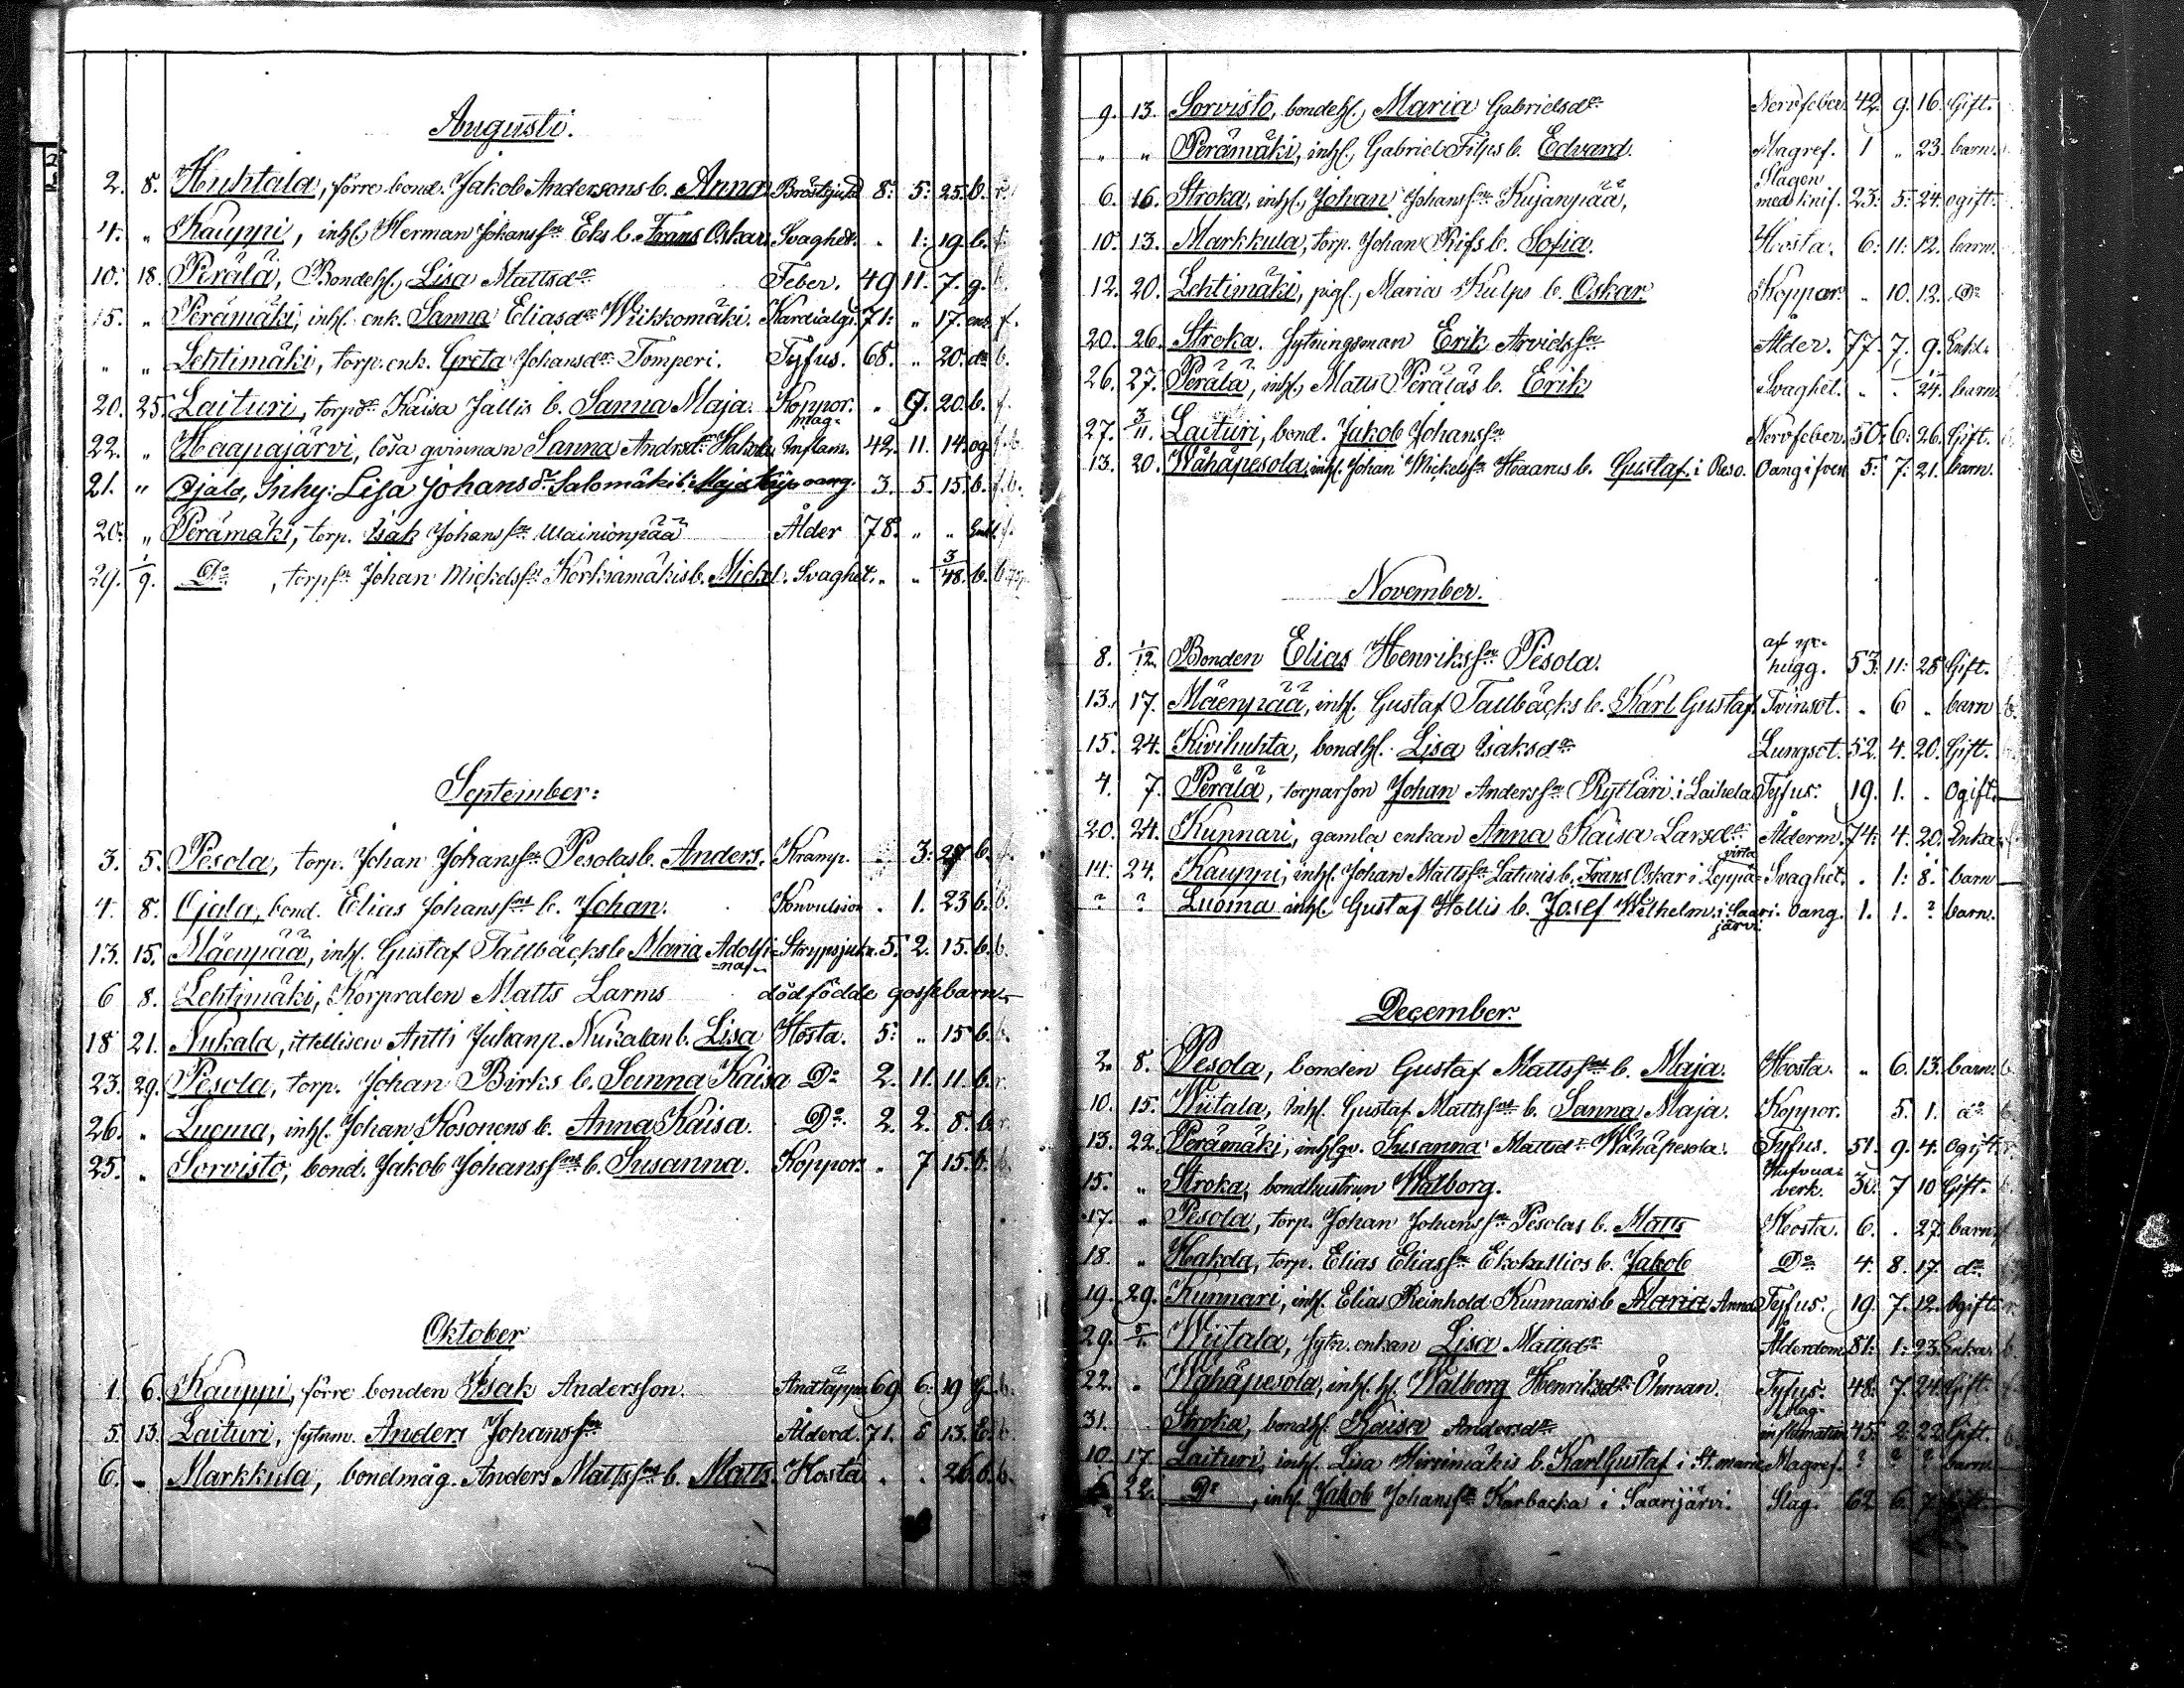 Augusti.
2. 8. Huhtala, förre bond. Jakob Andersons b. Anna Bröstsjukd 8: 5: 25. b. r.
4. " Kauppi, inhs. Herman Johanss:n Eks b. Frans Oskar. Svaghet. " 1: 19. b. f.
10. 18. Perälä, Bondeh., Lisa Mattsdr Feber. 49 11. 7. g. b.
15. " Perämäki, inh. enk. Sanna Eliasdr Wiikkomäki. Kardialgi. 71: " 17. enk. f.
" " Lehtimäki, torp. enk. Greta Johansdr Tomperi. Tyfus. 68. " 20. do b.
20. 25. Laituri, torpdr Kaisa Jallis b. Sanna Maja. Koppor. " 9. 20. b. f.
22. " Haapajärvi, lösa qvinnan Sanna Andrsdr Hakola mag= Inflam. 42. 11. 14. og f.b.
21. " Ojala, Inhy: Lisa Johansdr Salomäki b: Maja oang. 3. 5. 15. b. f.b.
20. " Perämäki, torp. Isak Johanss:n Wainionpää Ålder 78. " " Enkl. f.
29. 1/9. Do , torps:n Johan Mickelss:n Korkiamäkis b. Mickel. Svaghet. " " 3/48. b. b.
September:
3. 5. Pesola, torp. Johan Johanss:n Pesolas b. Anders. Kramp. . 3: 27 b. f.
4. 8. Ojala, bond. Elias Johanss:ns b. Johan. Konvulsion . 1. 23 b. b.
13. 15. Mäenpää, inh. Gustaf Tallbäcks b. Maria Adolfi= Strypsjuka. 5. 2. 15. b. b.
=na
6 8. Lehtimäki, Korpralen Matts Larms dödfödde gossebarn.
18 21. Nukala, ittellisen Antti Juhanp. Nukalan b. Lisa Hosta. 5: " 15 b. b.
23. 29. Pesola, torp. Johan Birks b. Sanna Kaisa Do 2. 11. 11. b. r.
26. " Luoma, inh. Johan Kosonens b. Anna Kaisa. Do. 2. 2. 8. b. r.
25. " Sorvisto, bond. Jakob Johanss:ns b. Susanna. Koppor. " 7 15. b. b.
Oktober
1. 6. Kauppi, förre bonden Isak Andersson. Andtäppa 69 6. 19 G. b.
5. 13. Laituri, sytnm. Anders Johanss:n Ålderd. 71. 8 13. E. b.
6. " Markkula, bondmåg. Anders Mattss:ns b. Matts. Hosta . . 26. b. b.
9. 13. Sorvisto, bondeh., Maria Gabrielsdr Nervfeber. 42. 9. 16. Gift.
" " Perämäki, inh., Gabriel Filps b. Edvard. Magref. 1 " 23. barn.
6. 16. Stroka, inh., Johan Johanss:n Kujanpää, Slagen med knif. 23: 5: 24. ogift.
10. 13. Markkula, torp. Johan Rifs b. Sofia. Hosta. 6: 11: 12. barn.
12. 20. Lehtimäki, pig., Maria Kulps b. Oskar Koppor. " 10. 12. Do
20. 26. Stroka. Sytningsman Erik Arvidss:n Ålder. 77. 7. 9. Enkl.
26. 27. Perälä, inh., Matts Peräläs b. Erik Svaghet. . . 24. barn.
27. 3/11. Laituri, bond. Jakob Johanss:n Nervfeber. 50: 6: 26. Gift.
13. 20. Wähäpesola, inh. Johan Mickelss:n Haanus b. Gustaf. i Reso. Oang i fven 5: 7: 21. barn.
November.
8. 1/12. Bonden Elias Henrikss:n Pesola. af yx= hugg. 53: 11: 28 Gift.
13. 17. Mäenpää, inh. Gustaf Tallbäcks b. Karl Gustaf. Tvinsot. . 6 . barn b.
15. 24. Kivihuhta, bondh. Lisa Isaksdr Lungsot. 52. 4. 20. Gift.
4. 7. Perälä, torparson Johan Anderss:n Ryttäri i Laihela Tyfus. 19. 1. . Ogift.
20. 24. Kunnari, gamla enkan Anna Kaisa Larsdr Ålderm. 74. 4. 20. Enka
14. 24. Kauppi, inh. Johan Mattss:n Laturis b. Frans Oskar i Leppä= virta Svaghet. . 1: 8. barn
? ? Luoma inh. Gustaf Hollis b. Josef Wilhelm. i Saari= järvi. Oang. 1. 1. ? barn.
December.
2. 8. Pesola, bonden Gustaf Mattss:ns b. Maja. Hosta. " 6. 13. barn. b.
10. 15. Wiitala, inh. Gustaf Mattss:ns b. Sanna Maja. Koppor. 5. 1. do b.
13. 22. Perämäki, inh.qv. Susanna Mattsdr Wähäpesola. Tyfus. 51. 9. 4. Ogift. r.
15. " Stroka, bondhustrun Walborg. Hufvud= verk. 30. 7 10 Gift. b.
17. " Pesola, torp. Johan Johanss:n Pesolas b. Matts Hosta. 6. . 27. barn
18. " Hakola, torp. Elias Eliass:n Ekokallios b. Jakob Do 4. 8. 17. do
19. 29. Kunnari, inh. Elias Reinhold Kunnaris b. Maria Anna Tyfus. 19 7. 12. Ogift. r.
29. 5/1. Wiitala, sytn. enkan Lisa Mattsdr Ålderdom 81: 1: 23. Enka. b.
22. " Wähäpesola, inh. h. Walborg Henriksdr Öhman. Tyfus. 48: 7. 24. Gift.
31. Stroka, bondh. Kaisa Andersdr Mag= inflamation 45. 2. 22. Gift. b.
10 17 Laituri, inh. Lisa Hirsimäkis b. Karl Gustaf i St. marie Magref. ? ? ? barn
6 22. Do , inh. Jakob Johanss:n Karbacka i Saarijärvi. Slag. 62 6. 7. Gift.